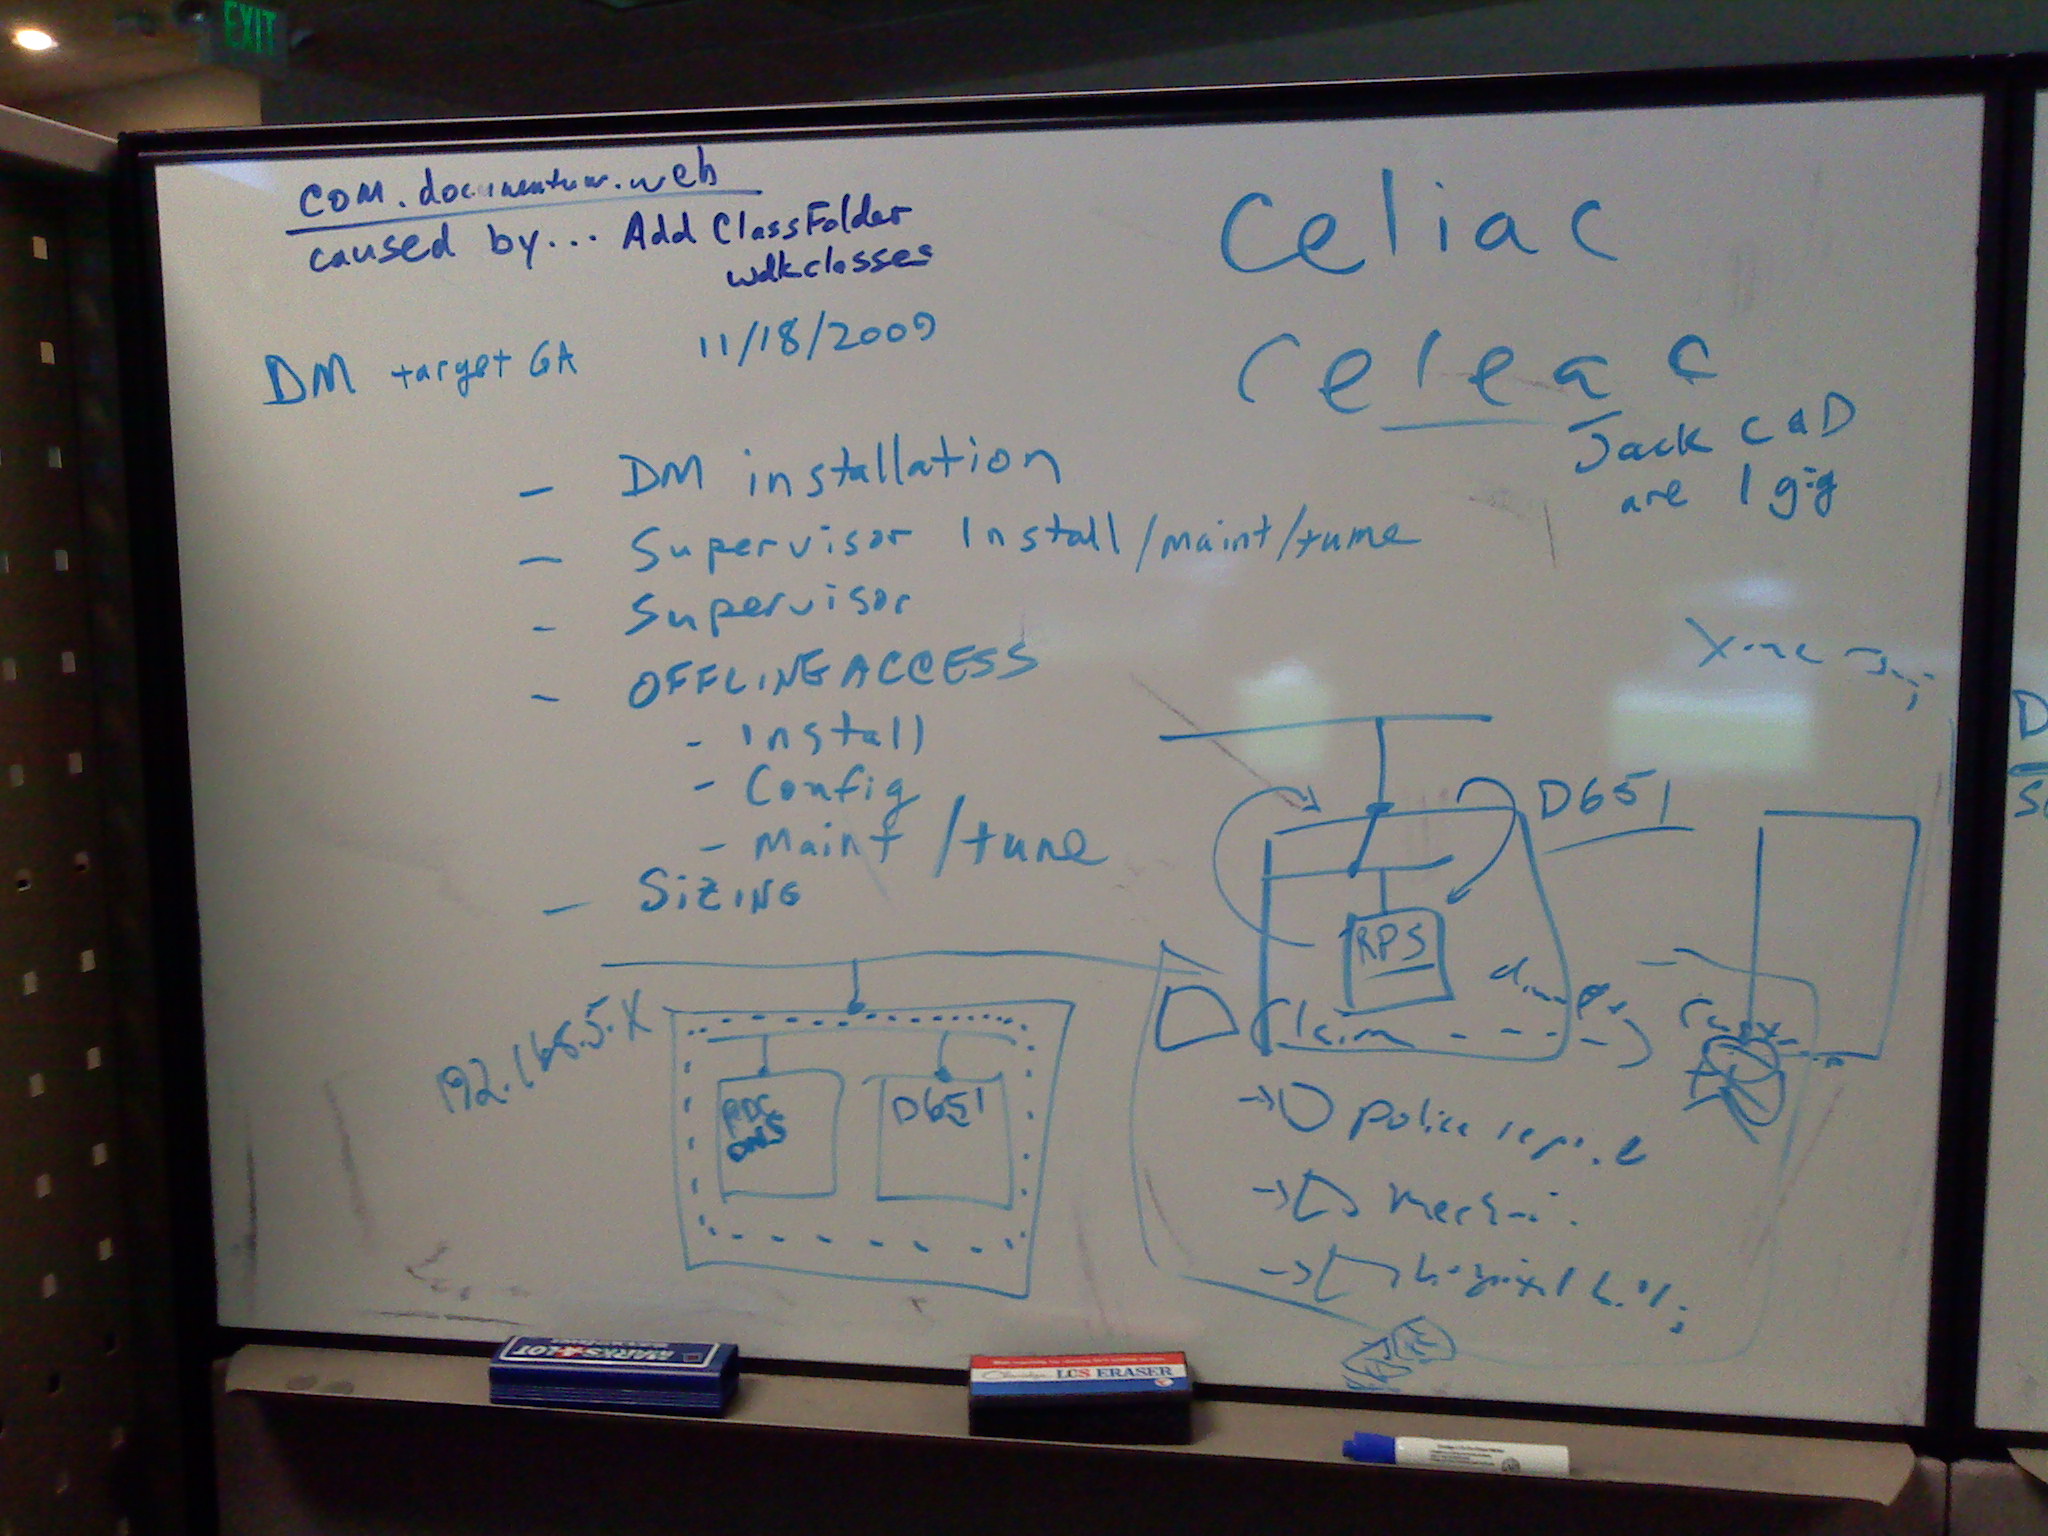 EXIT
com.documentum.web
caused by... Add ClassFolder
wdkclasses
DM target GA 11/18/2009
- DM installation
- Supervisor Install/maint/tune
- Supervisor
- OFFLINE ACCESS
- Install
- Config
- Maint/tune
- SIZING
celiac
celeac
Jack C & D
are 1 gig
D651
RPS
Claim
→ police
→
→ hospital bill
192.168.5.X
PDC
DNS
D651
D
MARKS-A-LOT
LCS ERASER